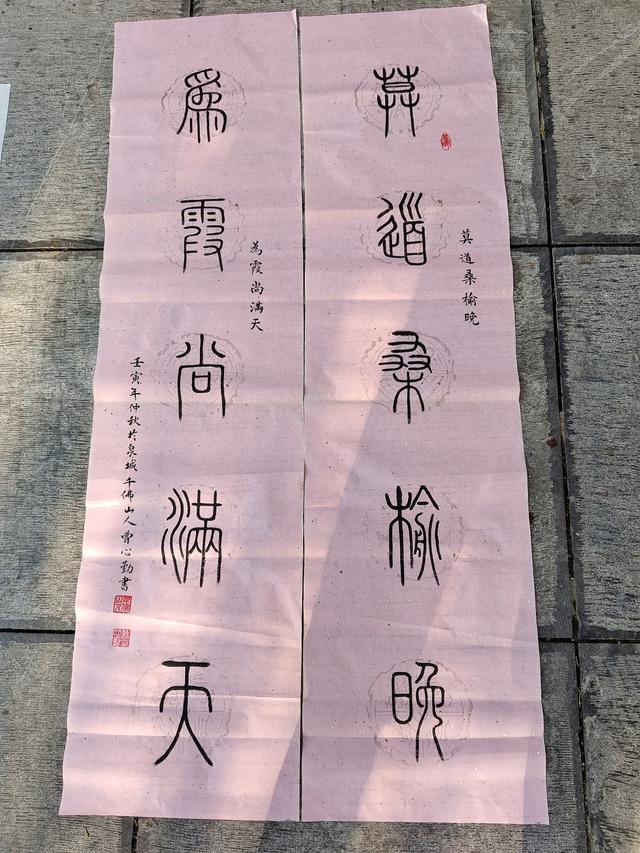 莫道桑榆晚
莫道桑榆晚
為霞尚滿天
為霞尚滿天
壬寅年仲秋於泉城千佛山人曹心勤書